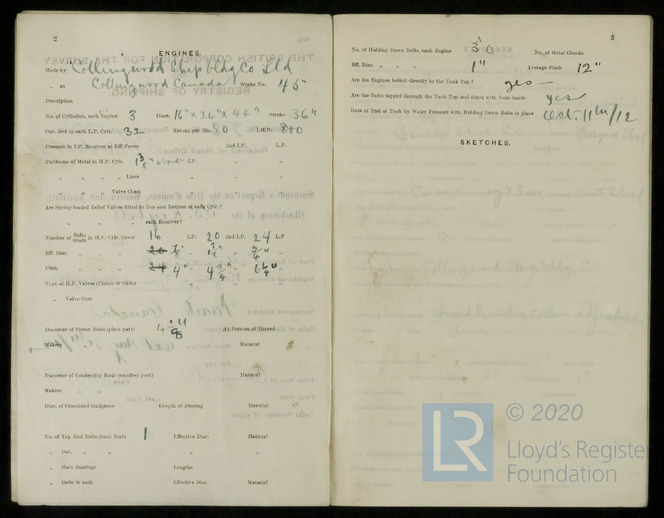 2
ENGINES.
Made by Collingwood Shipbldg Co Ltd
„ at Collingwood Canada Works No. 45
Description
No. of Cylinders, each Engine 3 Diars. 16" x 26" x 44" Stroke 36"
Cub. feet in each L.P. Cylr. 32 Revols. per Min. 80 I.H.P. 800
Pressure in I.P. Receiver at full Power 2nd I.P. L.P.
Thickness of Metal in H.P. Cylr. I.P. „ „
„ „ „ Liner „ „ „
„ „ Valve Chest „ „ „
Are Spring-loaded Relief Valves fitted to Top and Bottom of each Cylr.?
„ „ „ each Receiver?
Number of Bolts or Studs in H.P. Cylr. Cover 16 I.P. 20 2nd I.P. 24 L.P.
Eff. Diar. „ „ „
Pitch „ „ „ 4"
Type of H.P. Valves (Piston or Slide)
„ Valve Gear
Diameter of Piston Rods (plain part) At Bottom of Thread
Makers Material
Diameter of Connecting Rods (smallest part) Material
Makers „ „
Diar. of Crosshead Gudgeons Length of Bearing Material
No. of Top End Bolts (each Rod) 1 Effective Diar. Material
„ Bot. „ „ „ „
„ Main Bearings Lengths
„ Bolts in each Effective Diar. Material
3
No. of Holding Down Bolts, each Engine 30 No. of Metal Chocks
Eff. Diar. „ 1" Average Pitch 12"
Are the Engines bolted directly to the Tank Top? yes
Are the Bolts tapped through the Tank Top and fitted with Nuts inside yes
Date of Test of Tank by Water Pressure with Holding Down Bolts in place Oct. 11th/12
SKETCHES.
LR
© 2020
Lloyd's Register
Foundation